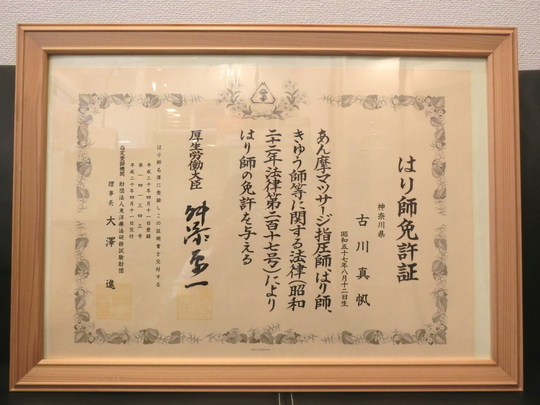 はり師免許証
神奈川県
古川真帆
昭和五十七年八月十二日生
あん摩マツサージ指圧師、はり師、
きゆう師等に関する法律(昭和
二十二年法律第二百十七号)により
はり師の免許を与える
厚生労働大臣 舛添要一
はり師名簿に登録しこの証明書を交付する
平成二十年四月十日登録
平成二十年四月十一日交付
指定登録機関 財団法人東洋療法研修試験財団
理事長 大澤 進